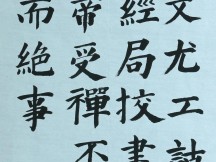 文尤工詩
經局挍書
帝受禪不
而絶事